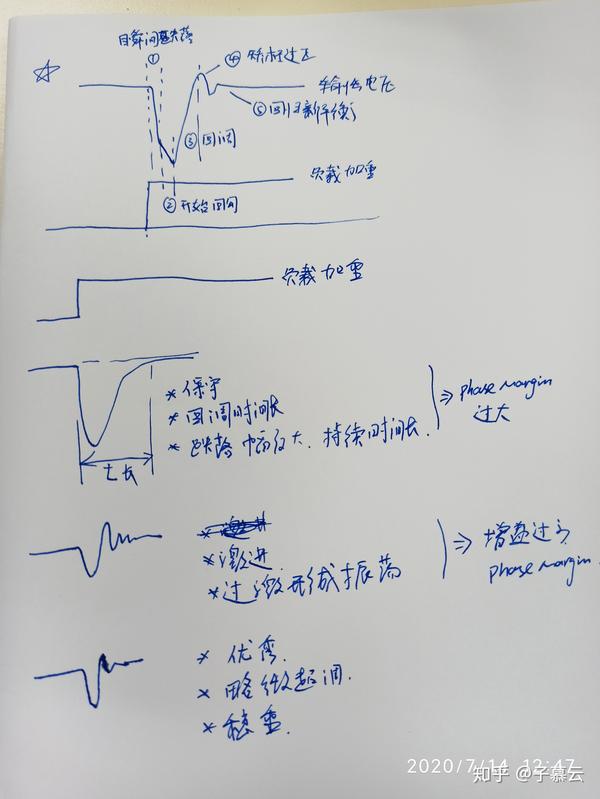 瞬间跌落
①
④ 矫枉过正
输出电压
⑤ 回归新平衡
③ 回调
负载加重
② 开始回调
负载加重
* 保守
* 回调时间长
* 跌落幅度大、持续时间长.
⇒ phase margin
过大
t长
* 激进.
* 过激形成振荡
⇒ 增益过高
phase margin.
* 优秀.
* 略微超调.
* 稳重.
2020/7/14 12:47
知乎 @子慕云